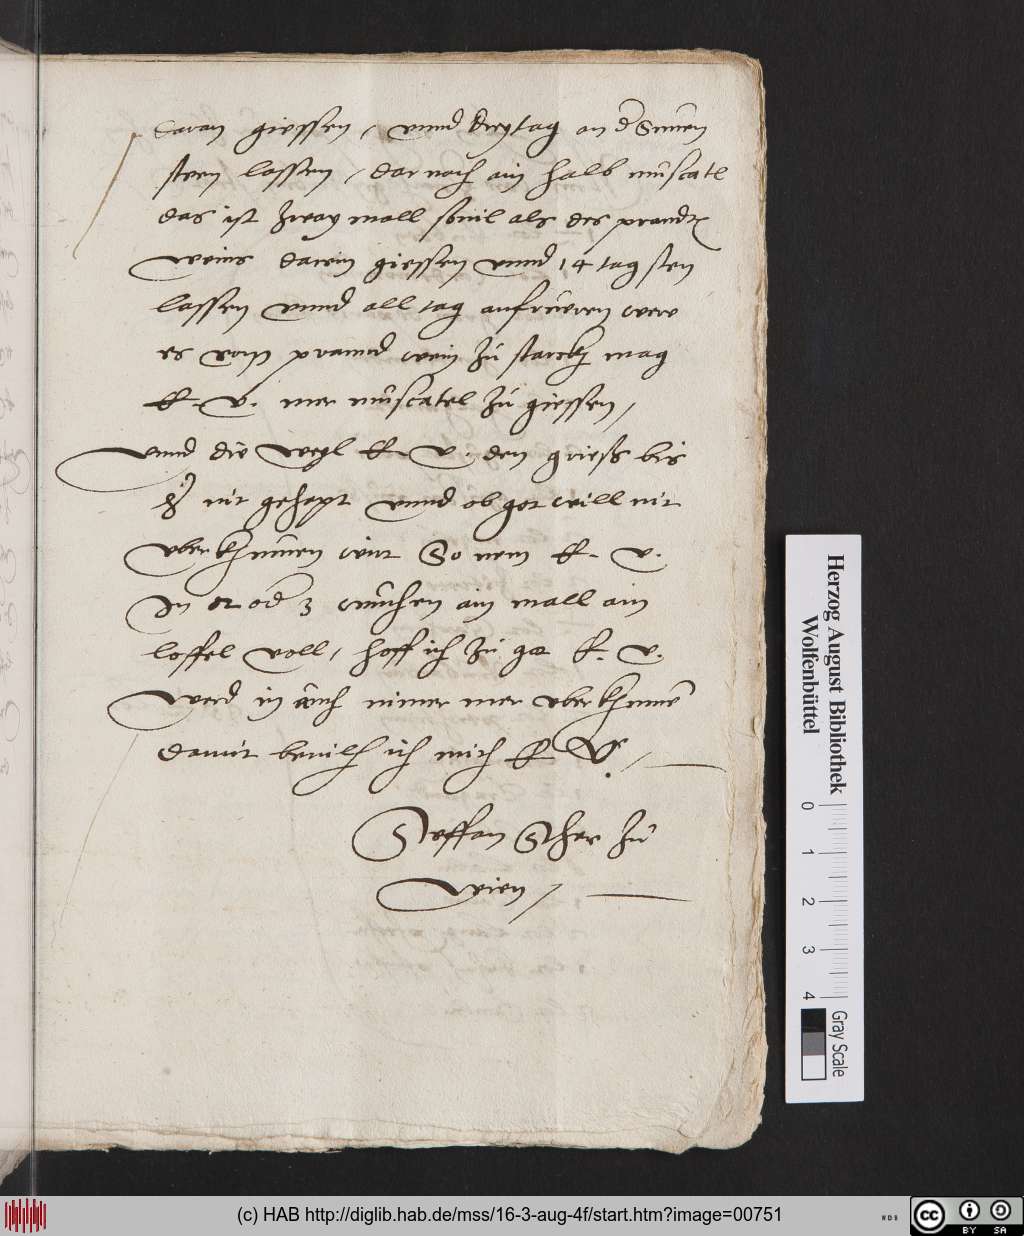 daran giessen / vnnd dreÿtag an d Sunnen
steen lassen / dar nach ain halb muscatl
das ist zway mall souil als des prandt
weins darein giessen vnnd 14 tag sten
lassen vnnd all tag aufrueren wer
es vom prannd wein zu starckh mag
E. v. mer muscatel zu giessen /
Vnnd die weyl E. v. den griesß bis
her nit gehapt vnnd ob got will nit
vberkhumen wirt So nem E. v.
In 2 od 3 wuchen ain mall ain
loffel voll / hoff ich zu got E. v.
werd in auch nimer mer vberkhumen
damit beuilch ich mich E V. /
Steffan zu
Wien /
Herzog August Bibliothek
Wolfenbüttel
0 1 2 3 4
Gray Scale
(c) HAB http://diglib.hab.de/mss/16-3-aug-4f/start.htm?image=00751
WDB
cc BY SA